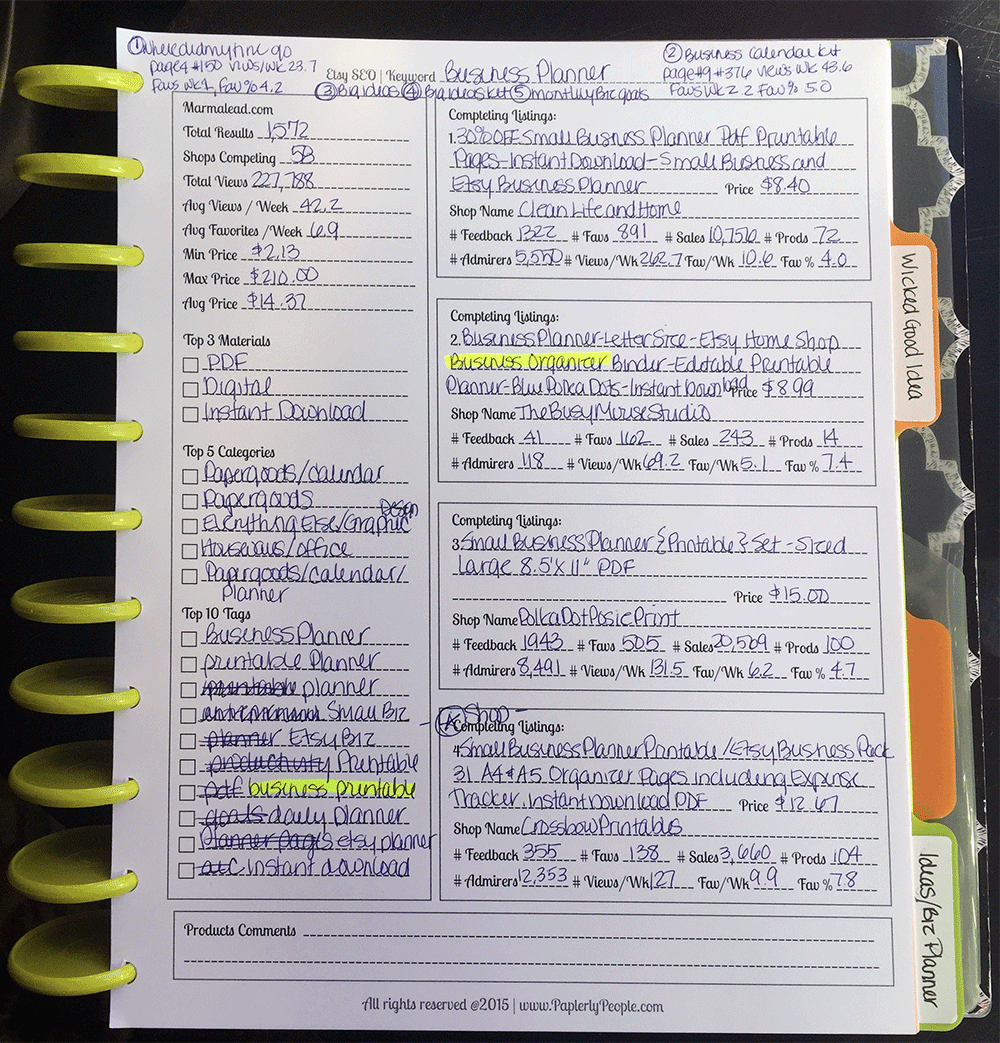 ① wheredidmytime go
page4 #150 views/wk 23.7
Favs wk 1, Fav % 4.2
② Business Calendar Kit
page#9 #376 views wk 43.6
Favs wk 2.2 Fav % 5.0
Etsy SEO | Keyword Business Planner
③ Big ideas ④ Big ideas kit ⑤ monthly Biz goals
Marmalead.com
Total Results 1,572
Shops Competing 58
Total Views 227,788
Avg Views / Week 42.2
Avg Favorites /Week 6.9
Min Price $2.13
Max Price $210.00
Avg Price $14.37
Top 3 Materials
PDF
Digital
Instant Download
Top 5 Categories
Papergoods/calendar
Papergoods
Everything Else/Graphic Design
Housewares/office
Papergoods/calendar/
planner
Top 10 Tags
Business Planner
printable Planner
printable planner
entrepreneur Small Biz
planner Etsy Biz
productivity Printable
pdf business printable
goals daily Planner
Planner pages etsy planner
instant download
Completing Listings:
1. 30% OFF Small Business Planner Pdf Printable
Pages-Instant Download-Small Business and
Etsy Business Planner Price $8.40
Shop Name Clean Life and Home
# Feedback 1322 # Favs 891 # Sales 10,750 # Prods 72
# Admirers 5,550 # Views/Wk 262.7 Fav/Wk 10.6 Fav % 4.0
Completing Listings:
2. Business Planner-Letter Size-Etsy Home Shop
Business Organizer Binder-Editable Printable
Planner-Blue Polka Dots-Instant Download Price $8.99
Shop Name TheBusyMouseStudio
# Feedback 41 # Favs 162 # Sales 243 # Prods 14
# Admirers 118 # Views/Wk 69.2 Fav/Wk 5.1 Fav % 7.4
Completing Listings:
3 Small Business Planner {Printable} Set-Sized
Large 8.5"X 11" PDF
Price $15.00
Shop Name PolkaDotPosiePrint
# Feedback 1943 # Favs 505 # Sales 20,509 # Prods 100
# Admirers 8,491 # Views/Wk 131.5 Fav/Wk 6.2 Fav % 4.7
Shop -
Completing Listings:
4. Small Business Planner Printable /Etsy Business Pack
31 A4 & A5 Organizer Pages including Expense
Tracker. Instant Download PDF Price $12.67
Shop Name CrossbowPrintables
# Feedback 355 # Favs 138 # Sales 3,660 # Prods 104
# Admirers 12,353 # Views/Wk 127 Fav/Wk 9.9 Fav % 7.8
Products Comments
All rights reserved @2015 | www.PaplerlyPeople.com
Wicked Good Idea
Ideas/Biz Planner